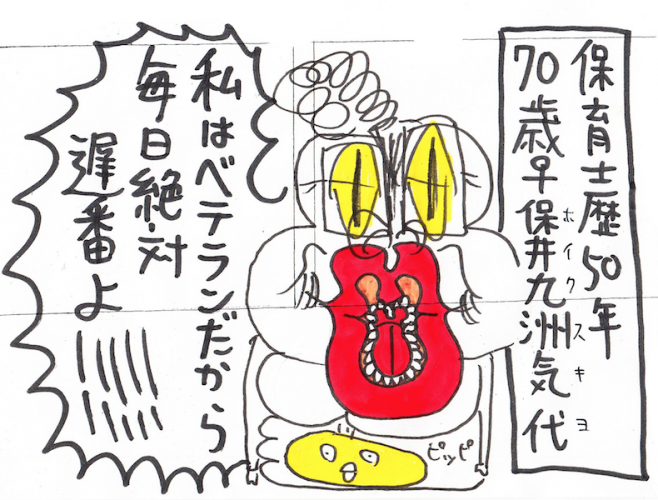 保育士歴50年
70歳♀保井九洲気代
ホイクスキヨ
私はベテランだから
毎日絶対
遅番よ!!!!!
ピッピ